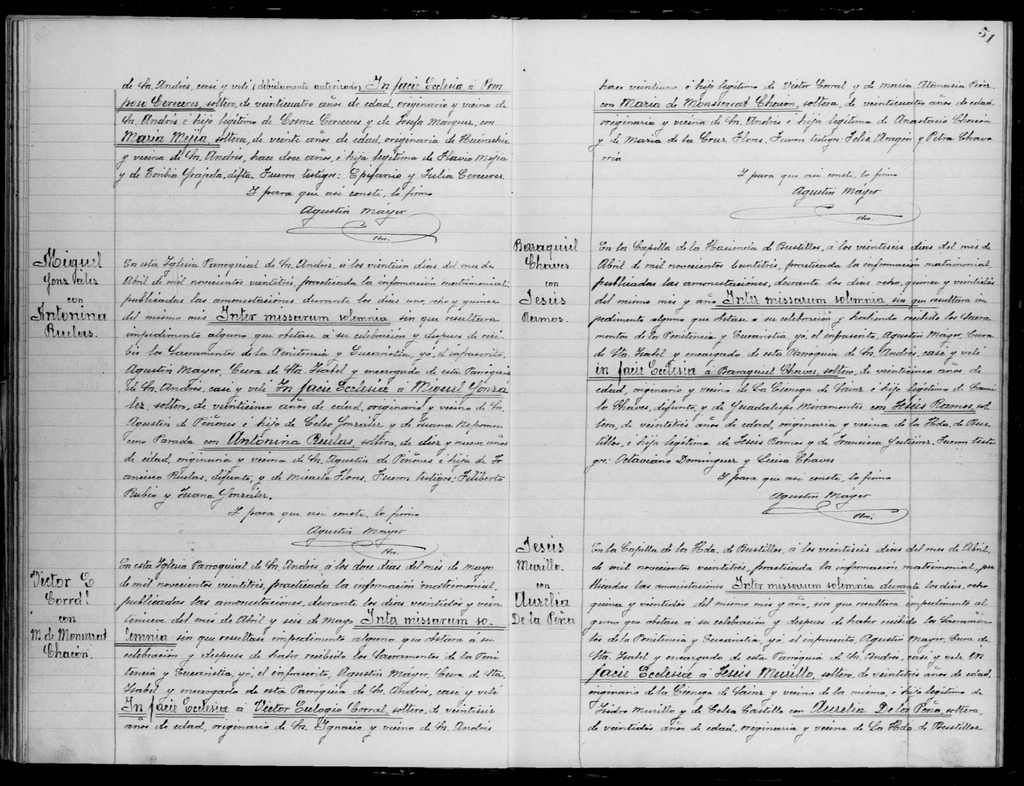 51
de Sn. Andrés, casé y velé (debidamente autorizado) In facie Ecclesia á Pom
poso Cereceres, soltero, de veinticuatro años de edad, originario y vecino de
Sn. Andrés é hijo legítimo de Cosme Cereceres y de Josefa Márquez, con
María Mejía soltera, de veinte años de edad, originaria de
y vecina de Sn. Andrés, hace doce años, é hija legítima de Flavio Mejía
y de Emilia Grajeda, difta. Fueron testigos: Epifanio y Julia Cereceres
Y para que así conste, lo firmo
Agustín Mayer
Miguel
Gonzáles
con
Antonina
Ruelas.
En esta Iglesia Parroquial de Sn. Andrés, á los veintiún días del mes de
Abril de mil novecientos veintitrés, practicada la información matrimonial,
publicadas las amonestaciones durante los días uno, ocho y quince
del mismo mes Inter missarum solemnia sin que resultara
impedimento alguno que obstara á su celebración y después de reci
bir los Sacramentos de la Penitencia y Eucaristía, yo, el infrascrito,
Agustín Mayer, Cura de Sta. Isabel y encargado de esta Parroquia
de Sn. Andrés, casé y velé In facie Ecclesiæ á Miguel Gonzá
lez, soltero, de veinticinco años de edad, originario y vecino de Sn.
Agustín de Peñones é hijo de Celso González y de Juana Nepomu
ceno Parada con Antonina Ruelas soltera, de diez y nueve años
de edad, originaria y vecina de Sn. Agustín de Peñones é hija de Fr
ancisco Ruelas, difunto, y de Micaela Flores. Fueron testigos: Filiberto
Rubio y Juana González.
Y para que así conste, lo firmo
Agustín Mayer
Victor E
Corral
con
M. de Monsarrat
Chacón.
En esta Iglesia Parroquial de Sn. Andrés, á los doce días del mes de mayo
de mil novecientos veintitrés, practicada la información matrimonial,
publicadas las amonestaciones, durante los días veintidós y vein
tinueve del mes de Abril y seis de Mayo Inter missarum so-
lemnia sin que resultase impedimento alguno que obstara á su
celebración y después de haber recibido los Sacramentos de la Peni
tencia y Eucaristía, yo, el infrascrito, Agustín Mayer, Cura de Sta.
Isabel y encargado de esta Parroquia de Sn. Andrés, casé y velé
In facie Ecclesia á Victor Eulogio Corral, soltero, de veintiséis
años de edad, originario de Sn. Ignacio y vecino de Sn. Andrés
hace veintiuno é hijo legítimo de Victor Corral y de María Atanasia
con María de Monsarrat Chacón, soltera, de veinticuatro años de edad
originaria y vecina de Sn. Andrés é hija legítima de Anastacio Chacón
y de María de la Cruz Flores. Fueron testigos Félix Aragón y Petra Chava
rría
Y para que así conste, lo firmo
Agustín Mayer
Baraquiel
Chaves
con
Jesús
Ramos.
En la Capilla de la Hacienda de Bustillos, á los veintiséis días del mes de
Abril de mil novecientos veintitrés, practicada la información matrimonial,
publicadas las amonestaciones, durante los días ocho, quince y veintidós
del mismo mes y año Inter missarum solemnia sin que resultara im
pedimento alguno que obstase á su celebración y habiendo recibido los Sacra
mentos de la Penitencia y Eucaristía yo, el infrascrito, Agustín Mayer, Cura
de Sta. Isabel y encargado de esta Parroquia de Sn. Andrés, casé y velé
in facie Ecclesia á Baraquiel Chaves, soltero, de veinticinco años de
edad, originario y vecino de La Ciénega de Sáinz é hijo legítimo de Cami
lo Chaves, difunto, y de Guadalupe Miramontes con Jesús Ramos, sol
tera, de veintitrés años de edad, originaria y vecina de la Hda. de Bus-
tillos, é hija legítima de Jesús Ramos y de Francisca Gutiérrez. Fueron testi
gos: Octaviano Domínguez y Luisa Chaves
Y para que así conste, lo firmo
Agustín Mayer
Jesús
Murillo.
con
Aurelia
De la Peña
En la Capilla de la Hda. de Bustillos, á los veintiséis días del mes de Abril,
de mil novecientos veintitrés, practicada la información matrimonial, pu
blicadas las amonestaciones Inter missarum solemnia durante los días, ocho
quince, y veintidós del mismo mes y año, sin que resultara impedimento al
guno que obstase á su celebración y después de haber recibido los Sacramen
tos de la Penitencia y Eucaristía, yo el infrascrito, Agustín Mayer, Cura de
Sta. Isabel y encargado de esta Parroquia de Sn. Andrés, casé y velé in
facie Ecclesiæ á Jesús Murillo, soltero, de veintitrés años de edad,
originario de la Ciénega de Sáinz y vecino de la misma, é hijo legítimo de
Isidro Murillo y de Celsa Castillo con Aurelia De la Peña, soltera,
de veintidós años de edad, originaria y vecina de La Hda. de Bustillos